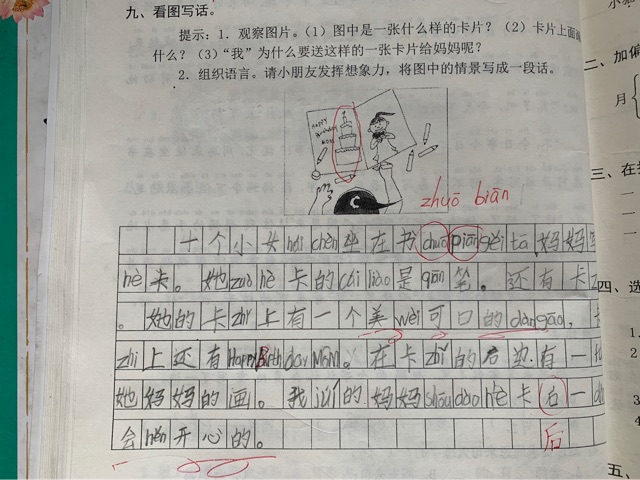 九、看图写话。
提示：1. 观察图片。（1）图中是一张什么样的卡片？（2）卡片上面画
什么？（3）“我”为什么要送这样的一张卡片给妈妈呢？
2. 组织语言。请小朋友发挥想象力，将图中的情景写成一段话。
HAPPY
Birthday
MOM
C
zhuō biān
一个小女hái chèn坐在书chuō piān gěi tā 妈妈写
hè卡。她zuò hè卡的cái liào是qiān笔。还有卡
。她的卡zhǐ上有一个美wèi可口的dàn gāo，
zhǐ上还有Happy Birthday Mom。在卡zhǐ的右边有一
她妈妈的画。我jué的妈妈shōu dào hè卡后一
后
会hěn开心的。
小
二、加偏
月
三、在
四、选
1.
2
3
4
五、